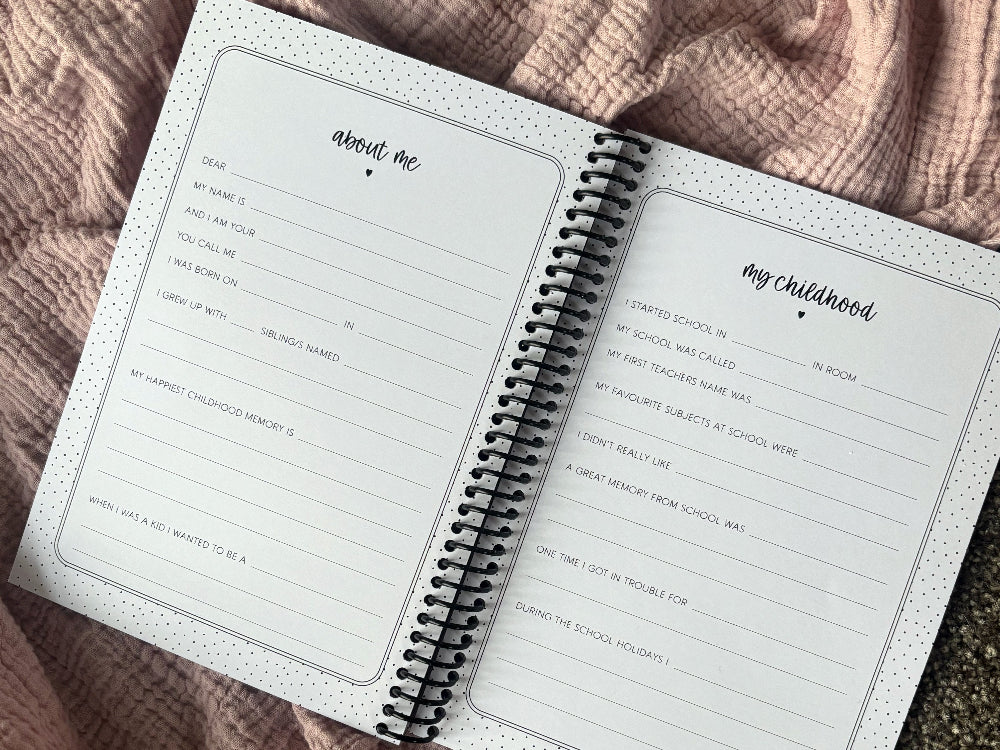 about me
DEAR
MY NAME IS
AND I AM YOUR
YOU CALL ME
I WAS BORN ON IN
I GREW UP WITH SIBLING/S NAMED
MY HAPPIEST CHILDHOOD MEMORY IS
WHEN I WAS A KID I WANTED TO BE A
my childhood
I STARTED SCHOOL IN IN ROOM
MY SCHOOL WAS CALLED
MY FIRST TEACHERS NAME WAS
MY FAVOURITE SUBJECTS AT SCHOOL WERE
I DIDN'T REALLY LIKE
A GREAT MEMORY FROM SCHOOL WAS
ONE TIME I GOT IN TROUBLE FOR
DURING THE SCHOOL HOLIDAYS I